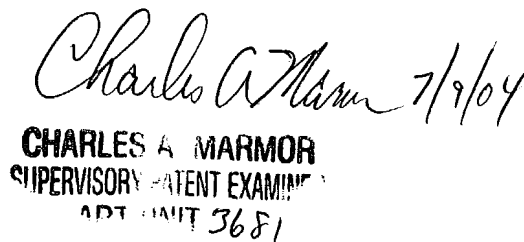 Charles A Marmor 7/9/04
CHARLES A MARMOR
SUPERVISORY PATENT EXAMINER
ART UNIT 3681